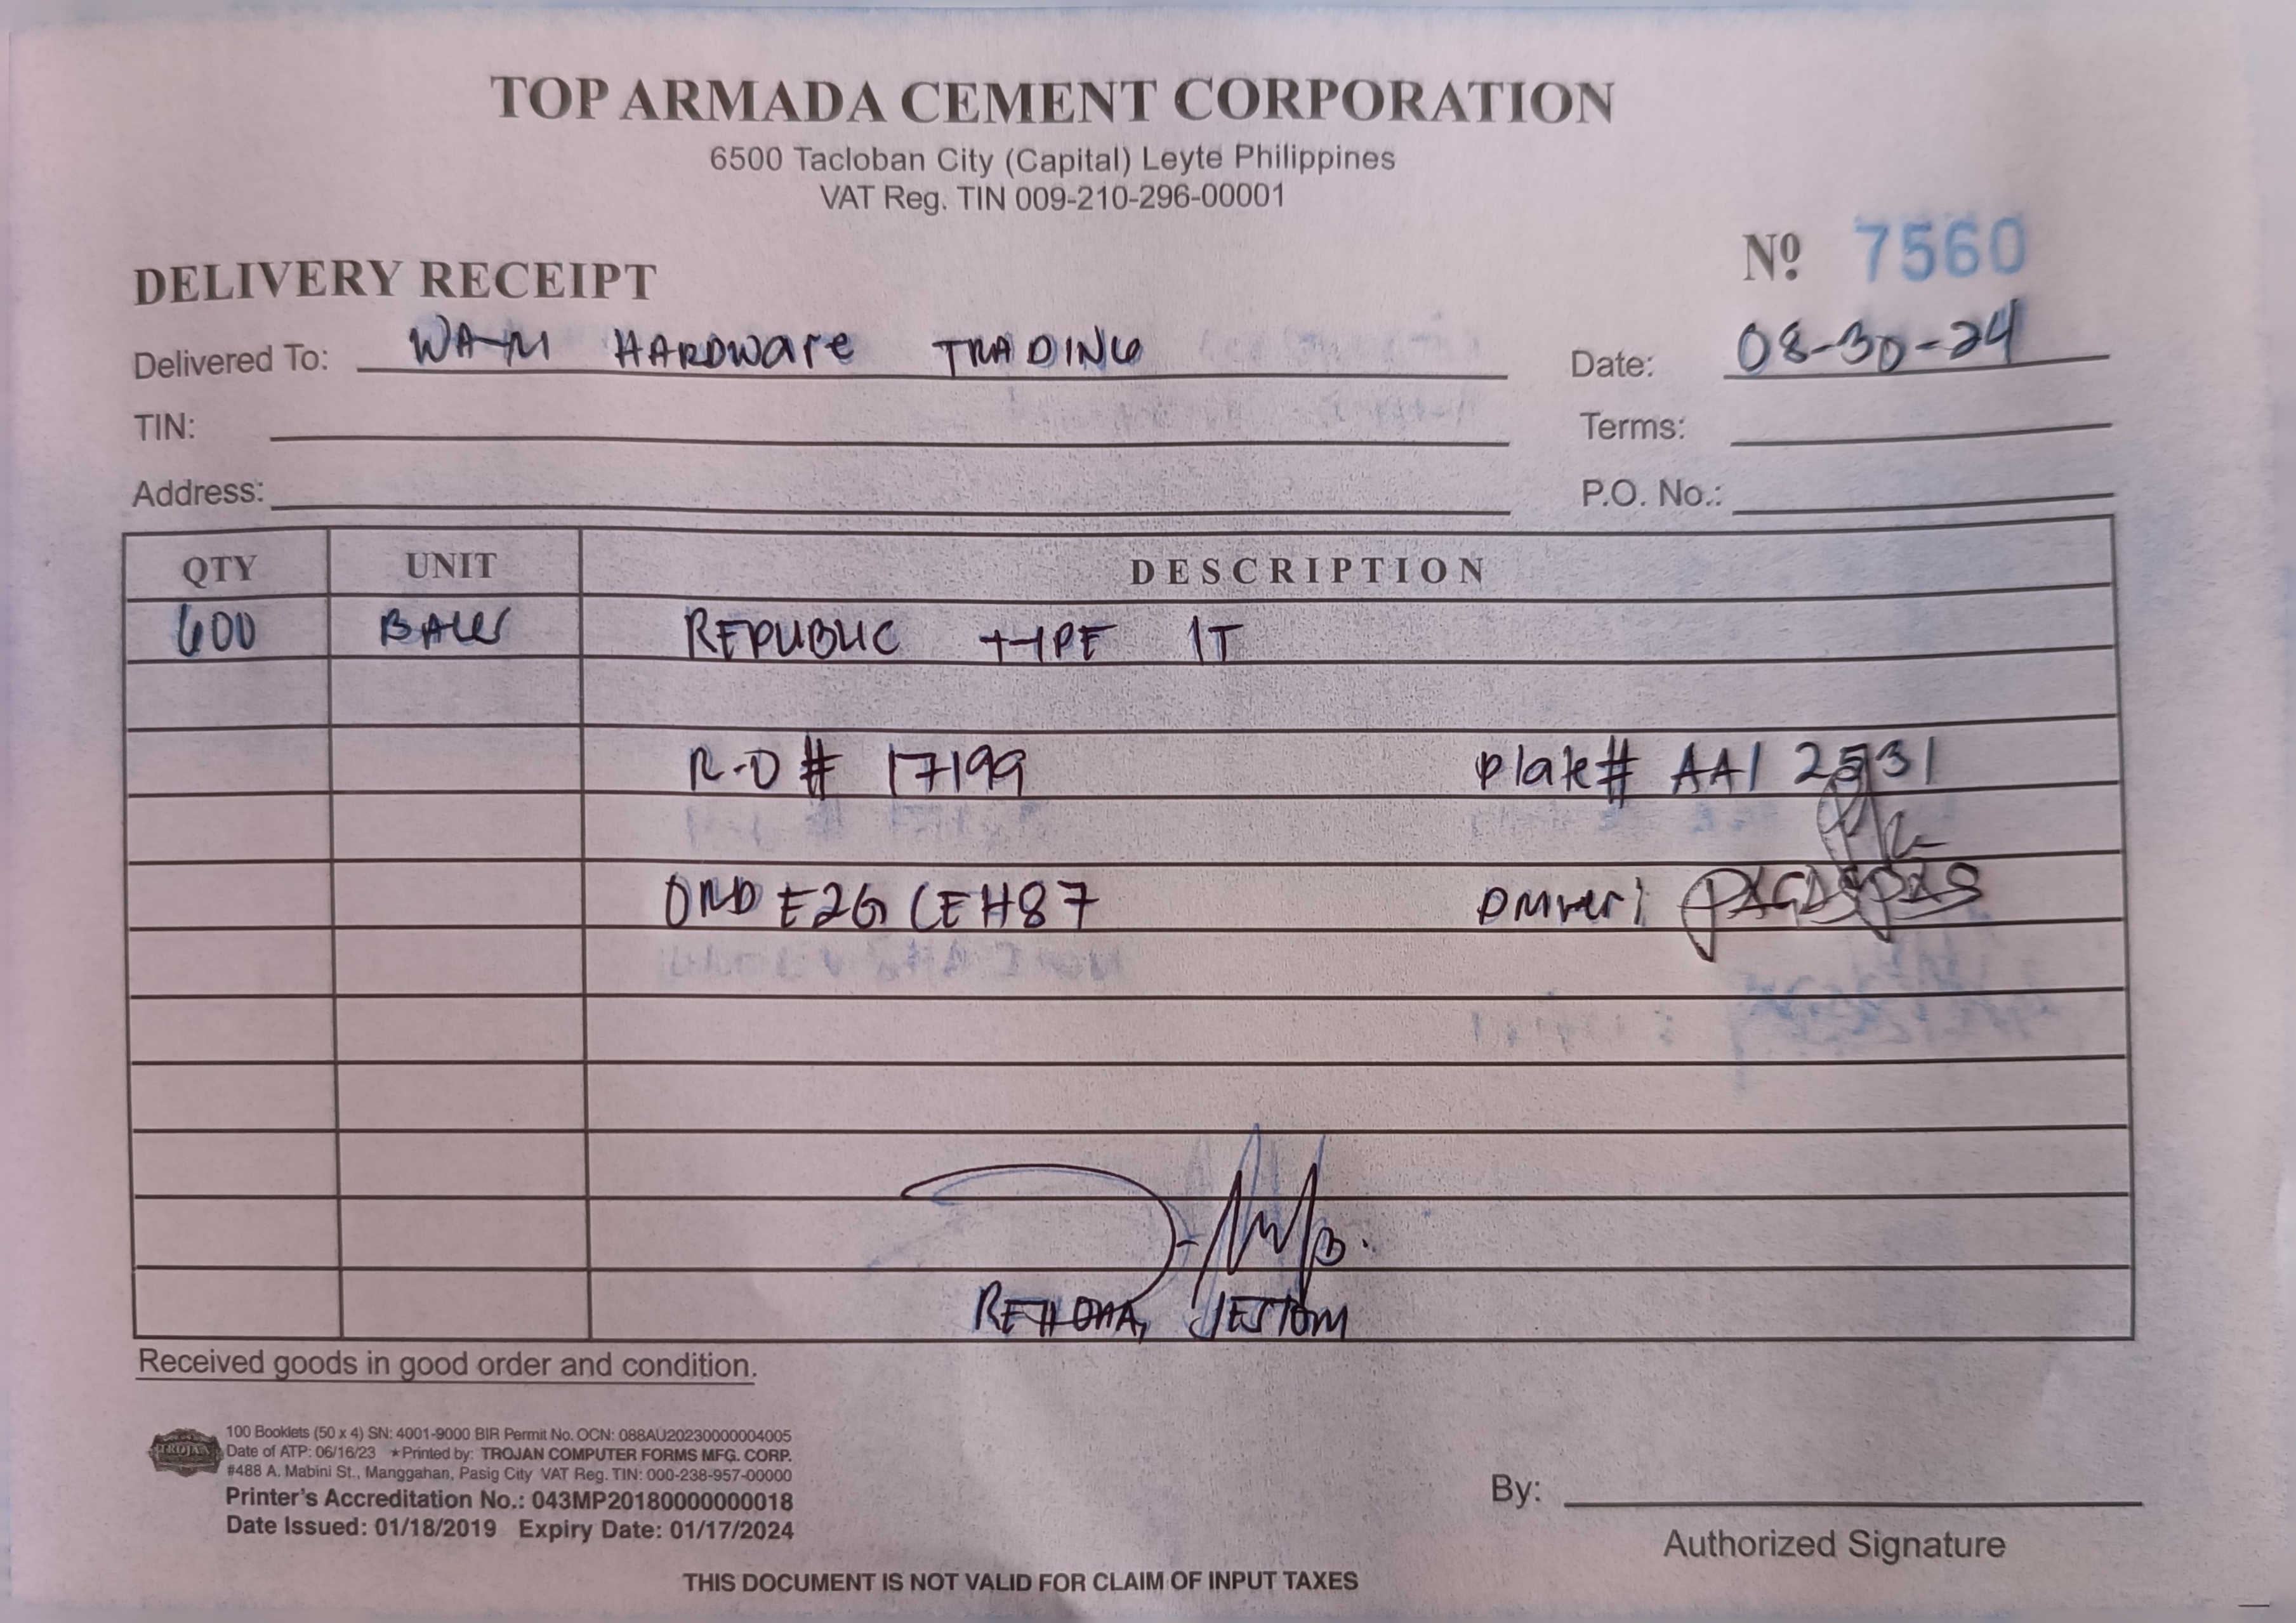 TOP ARMADA CEMENT CORPORATION
6500 Tacloban City (Capital) Leyte Philippines
VAT Reg. TIN 009-210-296-00001
DELIVERY RECEIPT
Nº 7560
Delivered To: WA-M HARDWare TRADING
Date: 08-30-24
TIN:
Terms:
Address:
P.O. No.:
QTY UNIT DESCRIPTION
600 REPUBLIC TYPE 1T
R-O # 17199 Plate# AAI 2531
ORD E2G CEH87 Driver:
JESTOM
Received goods in good order and condition.
TROJAN
100 Booklets (50 x 4) SN: 4001-9000 BIR Permit No. OCN: 088AU20230000004005
Date of ATP: 06/16/23 ★Printed by: TROJAN COMPUTER FORMS MFG. CORP.
#488 A. Mabini St., Manggahan, Pasig City VAT Reg. TIN: 000-238-957-00000
Printer's Accreditation No.: 043MP20180000000018
Date Issued: 01/18/2019 Expiry Date: 01/17/2024
By:
Authorized Signature
THIS DOCUMENT IS NOT VALID FOR CLAIM OF INPUT TAXES